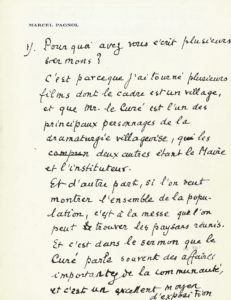 MARCEL PAGNOL
1/. Pourquoi avez vous écrit plusieurs
sermons ?
C'est parceque j'ai tourné plusieurs
films dont le cadre est un village,
et que Mr. le Curé est l'un des
principaux personnages de la
dramaturgie villageoise, les
deux autres étant le Maire
et l'instituteur.
Et d'autre part, si l'on veut
montrer l'ensemble de la popu-
lation, c'est à la messe que l'on
peut trouver les paysans réunis.
Et c'est dans le sermon que le
Curé parle souvent des affaires
importantes de la communauté,
et c'est un excellent moyen
d'exposition